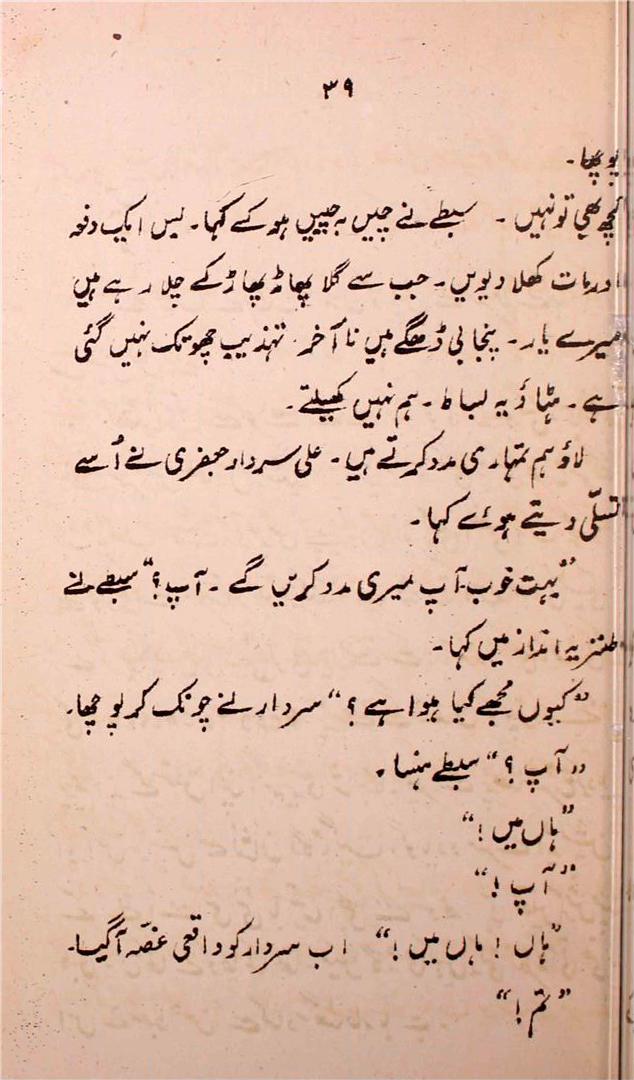 ۳۹
پوچھا۔
کچھ بھی تو نہیں۔ سبطے نے چیں بہ جبیں ہو کے کہا۔ بس ایک دفعہ
اور مات کھلا دیویں۔ جب سے گلا پھاڑ پھاڑ کے چلا رہے ہیں
میرے یار۔ پنجابی ڈھگے ہیں نا آخر تہذیب چھو تک نہیں گئی
ہے۔ ہٹاؤ یہ بساط۔ ہم نہیں کھیلتے۔
لاؤ ہم تمہاری مدد کرتے ہیں۔ علی سردار جعفری نے اُسے
تسلّی دیتے ہوئے کہا۔
”بہت خوب آپ میری مدد کریں گے۔ آپ؟“ سبطے نے
طنزیہ انداز میں کہا۔
”کیوں مجھے کیا ہوا ہے؟“ سردار نے چونک کر پوچھا۔
”آپ؟“ سبطے ہنسا۔
”ہاں میں!“
”آپ!“
”ہاں! ہاں میں!“ اب سردار کو واقعی غصّہ آ گیا۔
”تم!“